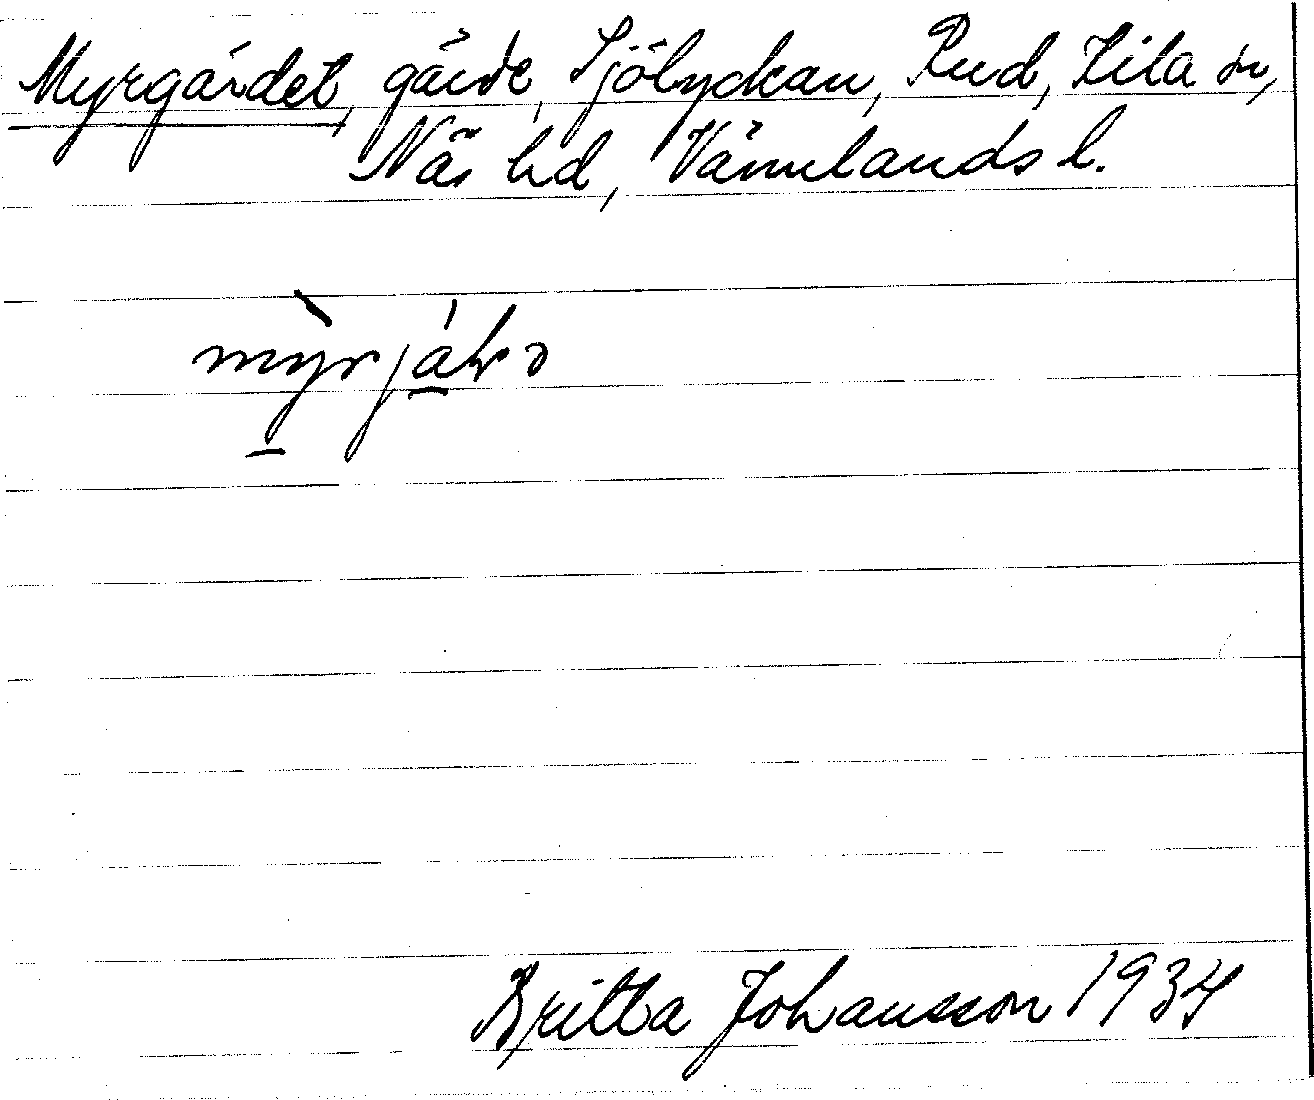 Myrgärdet, gärde, Sjölyckan, Rud, Kila sn,
Näs hd, Värmlands l.
Britta Johansson 1934